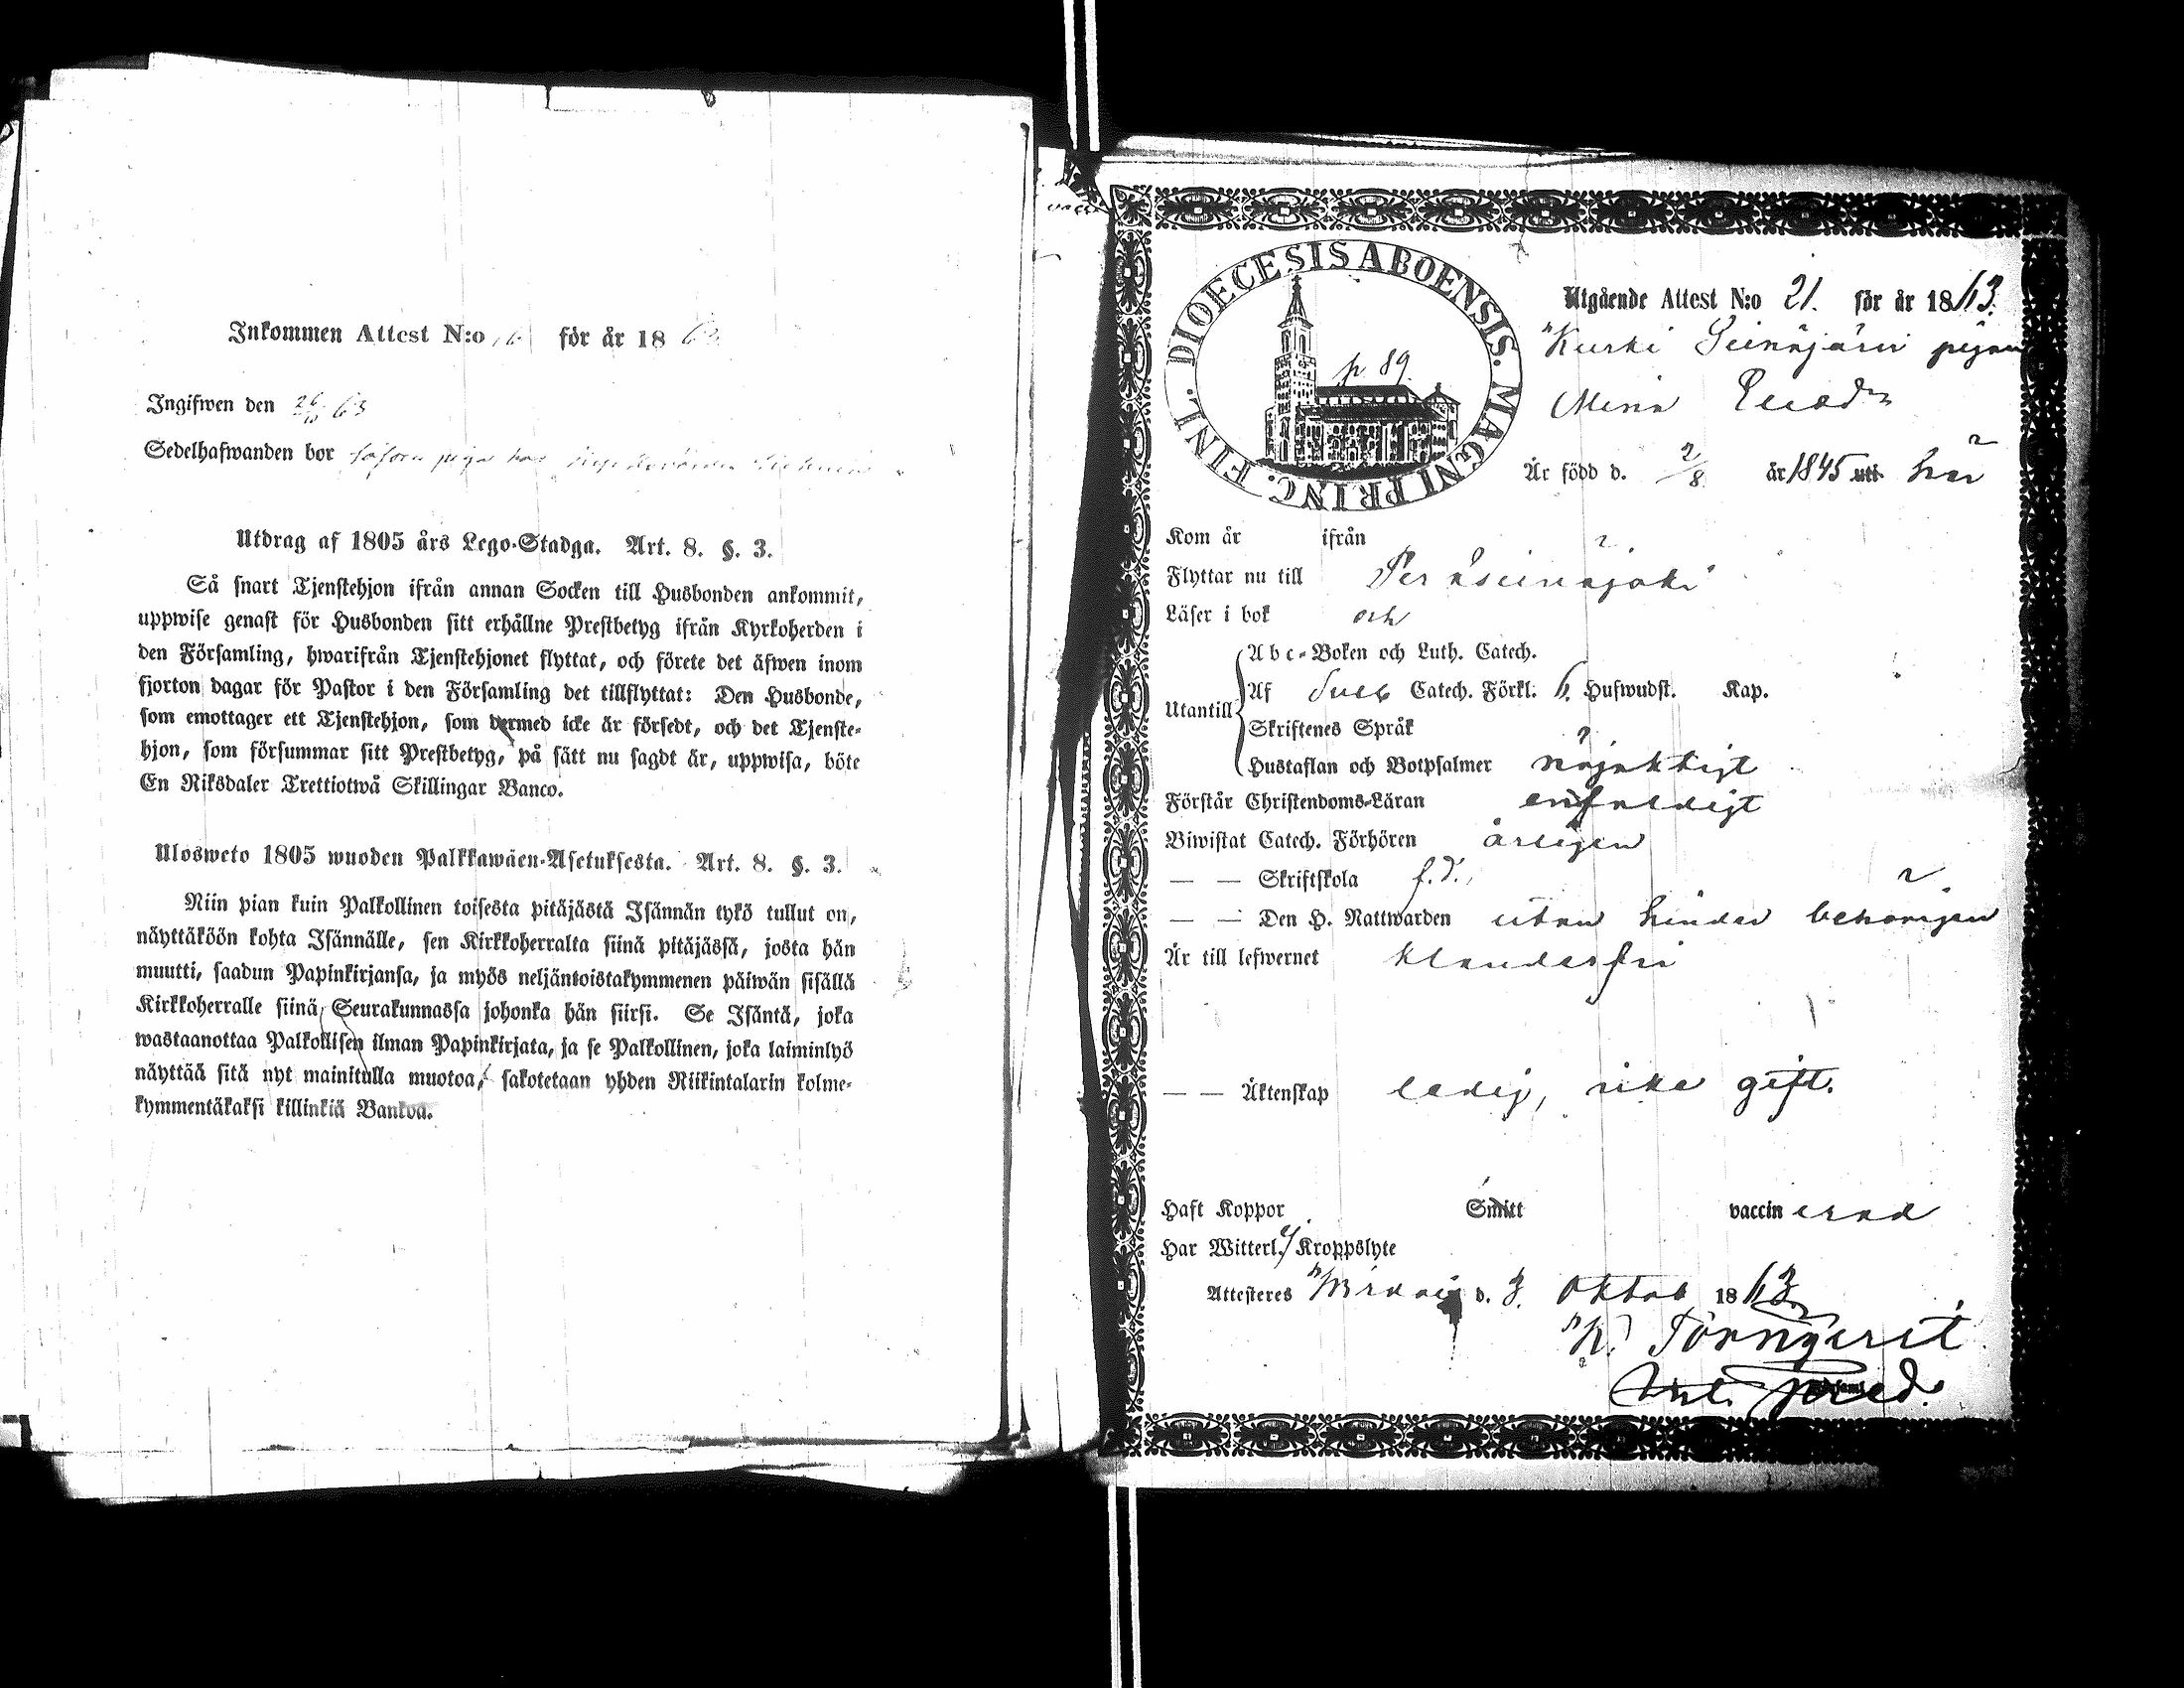 Inkommen Attest N:o 16 för år 1863
Ingifwen den 26/10 63
Sedelhafwanden bor såsom piga hos
Utdrag af 1805 års Lego-Stadga. Art. 8. §. 3.
Så snart Tjenstehjon ifrån annan Socken till Husbonden ankommit,
uppwise genast för Husbonden sitt erhållne Prestbetyg ifrån Kyrkoherden i
den Församling, hwarifrån Tjenstehjonet flyttat, och förete det äfwen inom
fjorton dagar för Pastor i den Församling det tillflyttat: Den Husbonde,
som emottager ett Tjenstehjon, som dermed icke är försedt, och det Tjenste-
hjon, som försummar sitt Prestbetyg, på sätt nu sagdt är, uppwisa, böte
En Riksdaler Trettiotwå Skillingar Banco.
Ulosweto 1805 wuoden Palkkawäen-Asetuksesta. Art. 8. §. 3.
Niin pian kuin Palkollinen toisesta pitäjästä Isännän tykö tullut on,
näyttäköön kohta Isännälle, sen Kirkkoherralta siinä pitäjässä, josta hän
muutti, saadun Papinkirjansa, ja myös neljäntoistakymmenen päiwän sisällä
Kirkkoherralle siinä Seurakunnassa johonka hän siirsi. Se Isäntä, joka
wastaanottaa Palkollisen ilman Papinkirjata, ja se Palkollinen, joka laiminlyö
näyttää sitä nyt mainitulla muotoa, sakotetaan yhden Riikintalarin kolme-
kymmentäkaksi killinkiä Bankoa.
DIOECESIS ABOENSIS. MAGNI PRINC. FINL.
p 89.
Utgående Attest N:o 21. för år 1863.
Kurki Seinäjärvi pigan
Är född d. 2/8 år 1845 uti här
Kom år ifrån
Flyttar nu till Peräseinäjoki
Läser i bok och
Utantill
Abc-Boken och Luth. Catech.
Af Sveb Catech. Förkl. 6 Hufwudst. Kap.
Skriftenes Språk
Hustaflan och Botpsalmer nöjaktigt
Förstår Christendoms-Läran enfaldigt
Biwistat Catech. Förhören årligen
— — Skriftskola f.d.
— — Den H. Nattwarden utan hinder behörigen
Är till lefwernet klanderfri
— — Äktenskap ledig, icke gift.
Haft Koppor Smitt vaccinerad
Har Witterl. ej Kroppslyte
Attesteras Wirdois d. 3. Oktob 1863.
K. Törnqvist